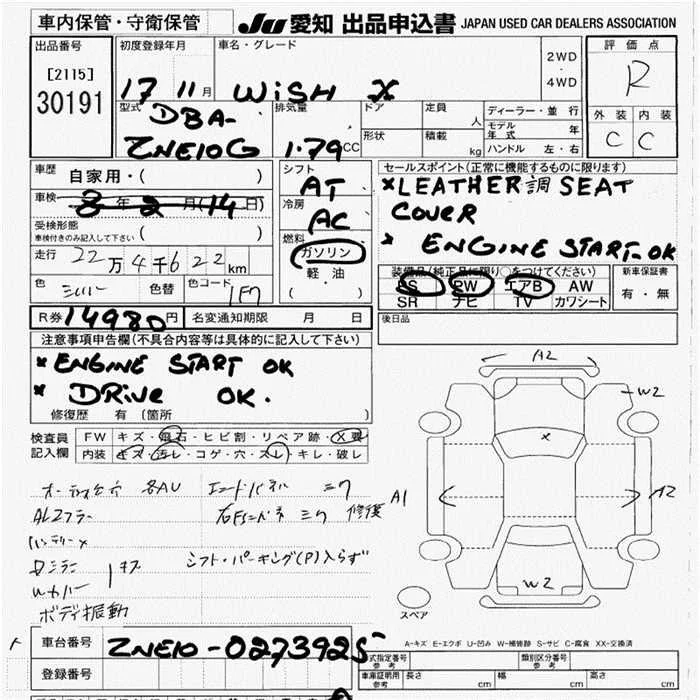 車内保管・守衛保管
JU 愛知 出品申込書 JAPAN USED CAR DEALERS ASSOCIATION
出品番号
[2115]
30191
初度登録年月
17 11月
車名・グレード
WiSH X
2WD
・
4WD
評価点
R
外装 内装
C C
型式
DBA-
ZNE10G
排気量
1.79CC
ドア
定員 人
形状
積載 kg
ディーラー・並行
モデル年式 年
ハンドル 左・右
車歴
自家用・( )
車検
8年2月(14日)
受検形態
車検付きのみ記入して下さい ( )
走行 22万4千622km
色 シルバー
色替
色コード 1F7
R券 14980円
名変通知期限 月 日
シフト
AT
冷房
AC
燃料
ガソリン
・
軽油
( )
セールスポイント(正常に機能するものに限ります)
*LEATHER調 SEAT
COVER
* ENGINE START-OK
装備品(純正品に限り○をつけてください)
PS PW エアB AW
SR ナビ TV カワシート
新車保証書
有・無
後日品
注意事項申告欄(不具合内容等は具体的に記入して下さい)
*ENGINE START OK
* DRiVe OK.
修復歴 有(箇所 )
検査員
記入欄
FW キズ・飛石・ヒビ割・リペア跡・X要
内装 キズ・汚レ・コゲ・穴・スレ・キレ・破レ
シフト・パーキング(P)入らず
ボディ振動
A2
W2
X
A1
A2
W2
スペア
A-キズ E-エクボ U-凹み W-補修跡 S-サビ C-腐食 XX-交換済
車台番号 ZNE10-0273925
登録番号
型式指定番号 参考
類別区分番号 参考
車庫証明用 参考
長さ cm 幅 cm 高さ cm